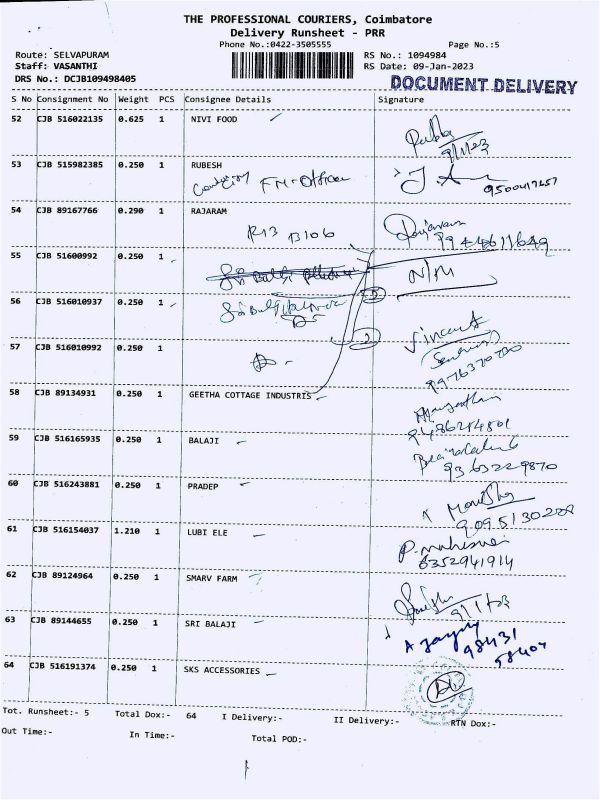 THE PROFESSIONAL COURIERS, Coimbatore
Delivery Runsheet - PRR
Phone No.:0422-3505555 Page No.:5
Route: SELVAPURAM RS No.: 1094984
Staff: VASANTHI RS Date: 09-Jan-2023
DRS No.: DCJB109498405 DOCUMENT DELIVERY
S No Consignment No Weight PCS Consignee Details Signature
52 CJB 516022135 0.625 1 NIVI FOOD
9/1/23
53 CJB 515982385 0.250 1 RUBESH
FM-Officer
54 CJB 89167766 0.290 1 RAJARAM
R13 B106
9944611649
55 CJB 51600992 0.250 1
N/M
56 CJB 516010937 0.250 1
Vincent
57 CJB 516010992 0.250 1
9976370780
58 CJB 89134931 0.250 1 GEETHA COTTAGE INDUSTRIS
9486284801
59 CJB 516165935 0.250 1 BALAJI
9363229870
60 CJB 516243881 0.250 1 PRADEP
61 CJB 516154037 1.210 1 LUBI ELE
6352941914
62 CJB 89124964 0.250 1 SMARV FARM
9/1/23
63 CJB 89144655 0.250 1 SRI BALAJI
98431
58407
64 CJB 516191374 0.250 1 SKS ACCESSORIES
Tot. Runsheet:- 5 Total Dox:- 64 I Delivery:- II Delivery:- RTN Dox:-
Out Time:- In Time:- Total POD:-